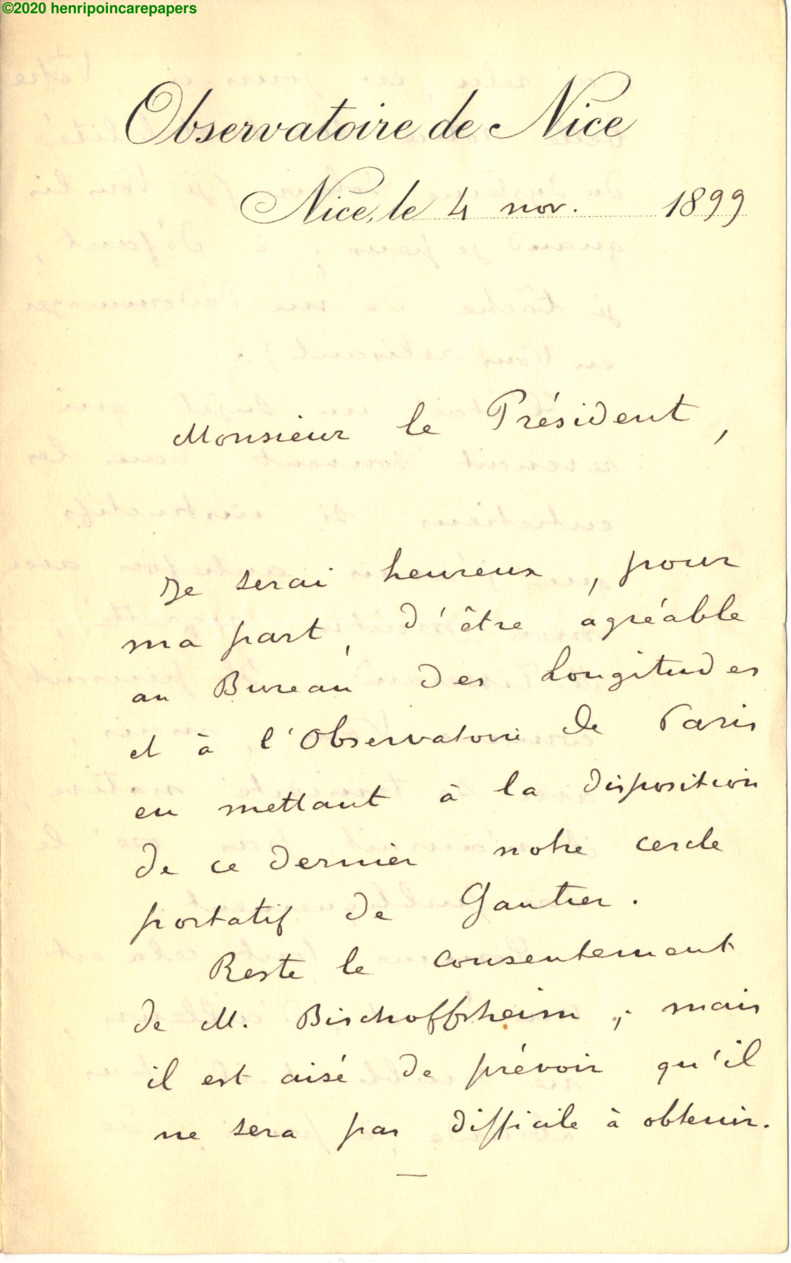 ©2020 henripoincarepapers
Observatoire de Nice
Nice, le 4 nov. 1899
Monsieur le Président,
Je serai heureux, pour
ma part, d'être agréable
au Bureau des Longitudes
et à l'Observatoire de Paris
en mettant à la disposition
de ce dernier notre cercle
portatif de Gautier.
Reste le consentement
de M. Bischoffsheim ; mais
il est aisé de prévoir qu'il
ne sera pas difficile à obtenir.
—